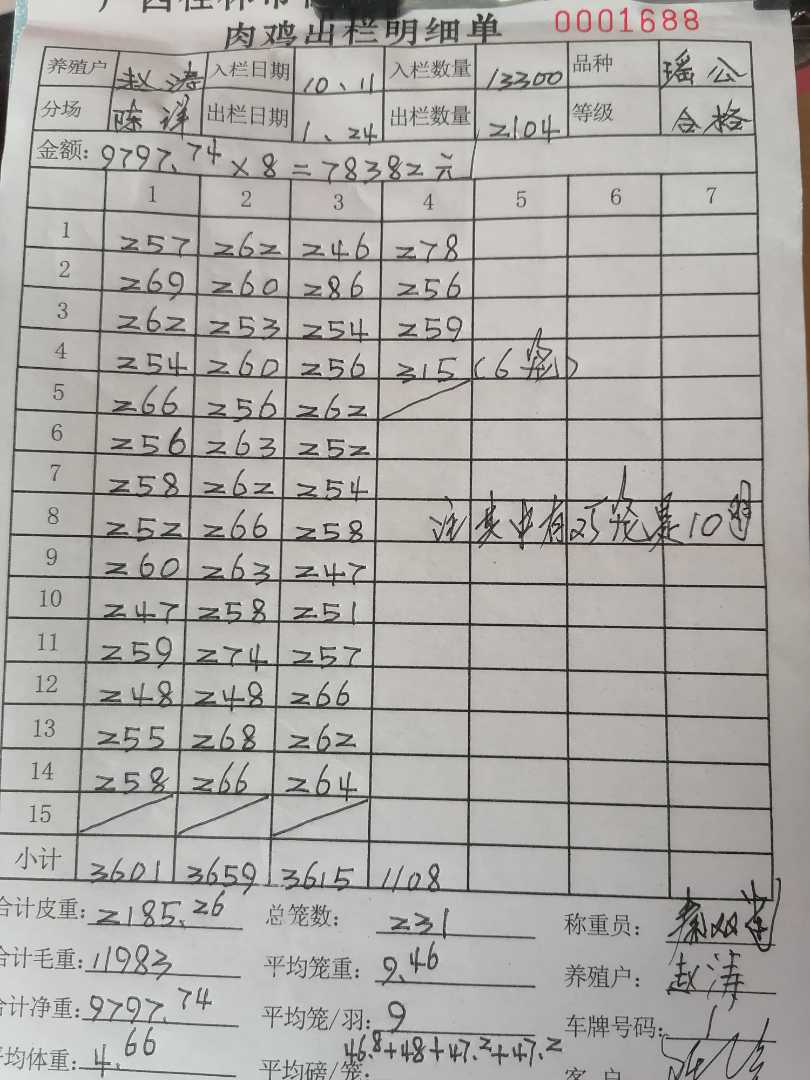 肉鸡出栏明细单 0001688
养殖户 赵涛 入栏日期 10、11 入栏数量 13300 品种 瑶公
分场 陈洋 出栏日期 1、24 出栏数量 2104 等级 合格
金额: 9797.74 × 8 = 78382元
1 2 3 4 5 6 7
1 257 262 246 278
2 269 260 286 256
3 262 253 254 259
4 254 260 256 315 (6笼)
5 266 256 262
6 256 263 252
7 258 262 254
8 252 266 258 注其中有25笼是10羽
9 260 263 247
10 247 258 251
11 259 274 257
12 248 248 266
13 255 268 262
14 258 266 264
15
小计 3601 3659 3615 1108
合计皮重: 2185.26 总笼数: 231 称重员:
合计毛重: 11983 平均笼重: 9.46 养殖户: 赵涛
合计净重: 9797.74 平均笼/羽: 9 车牌号码:
平均体重: 4.66 平均磅/笼: 46.8+48+47.2+47.2 客户